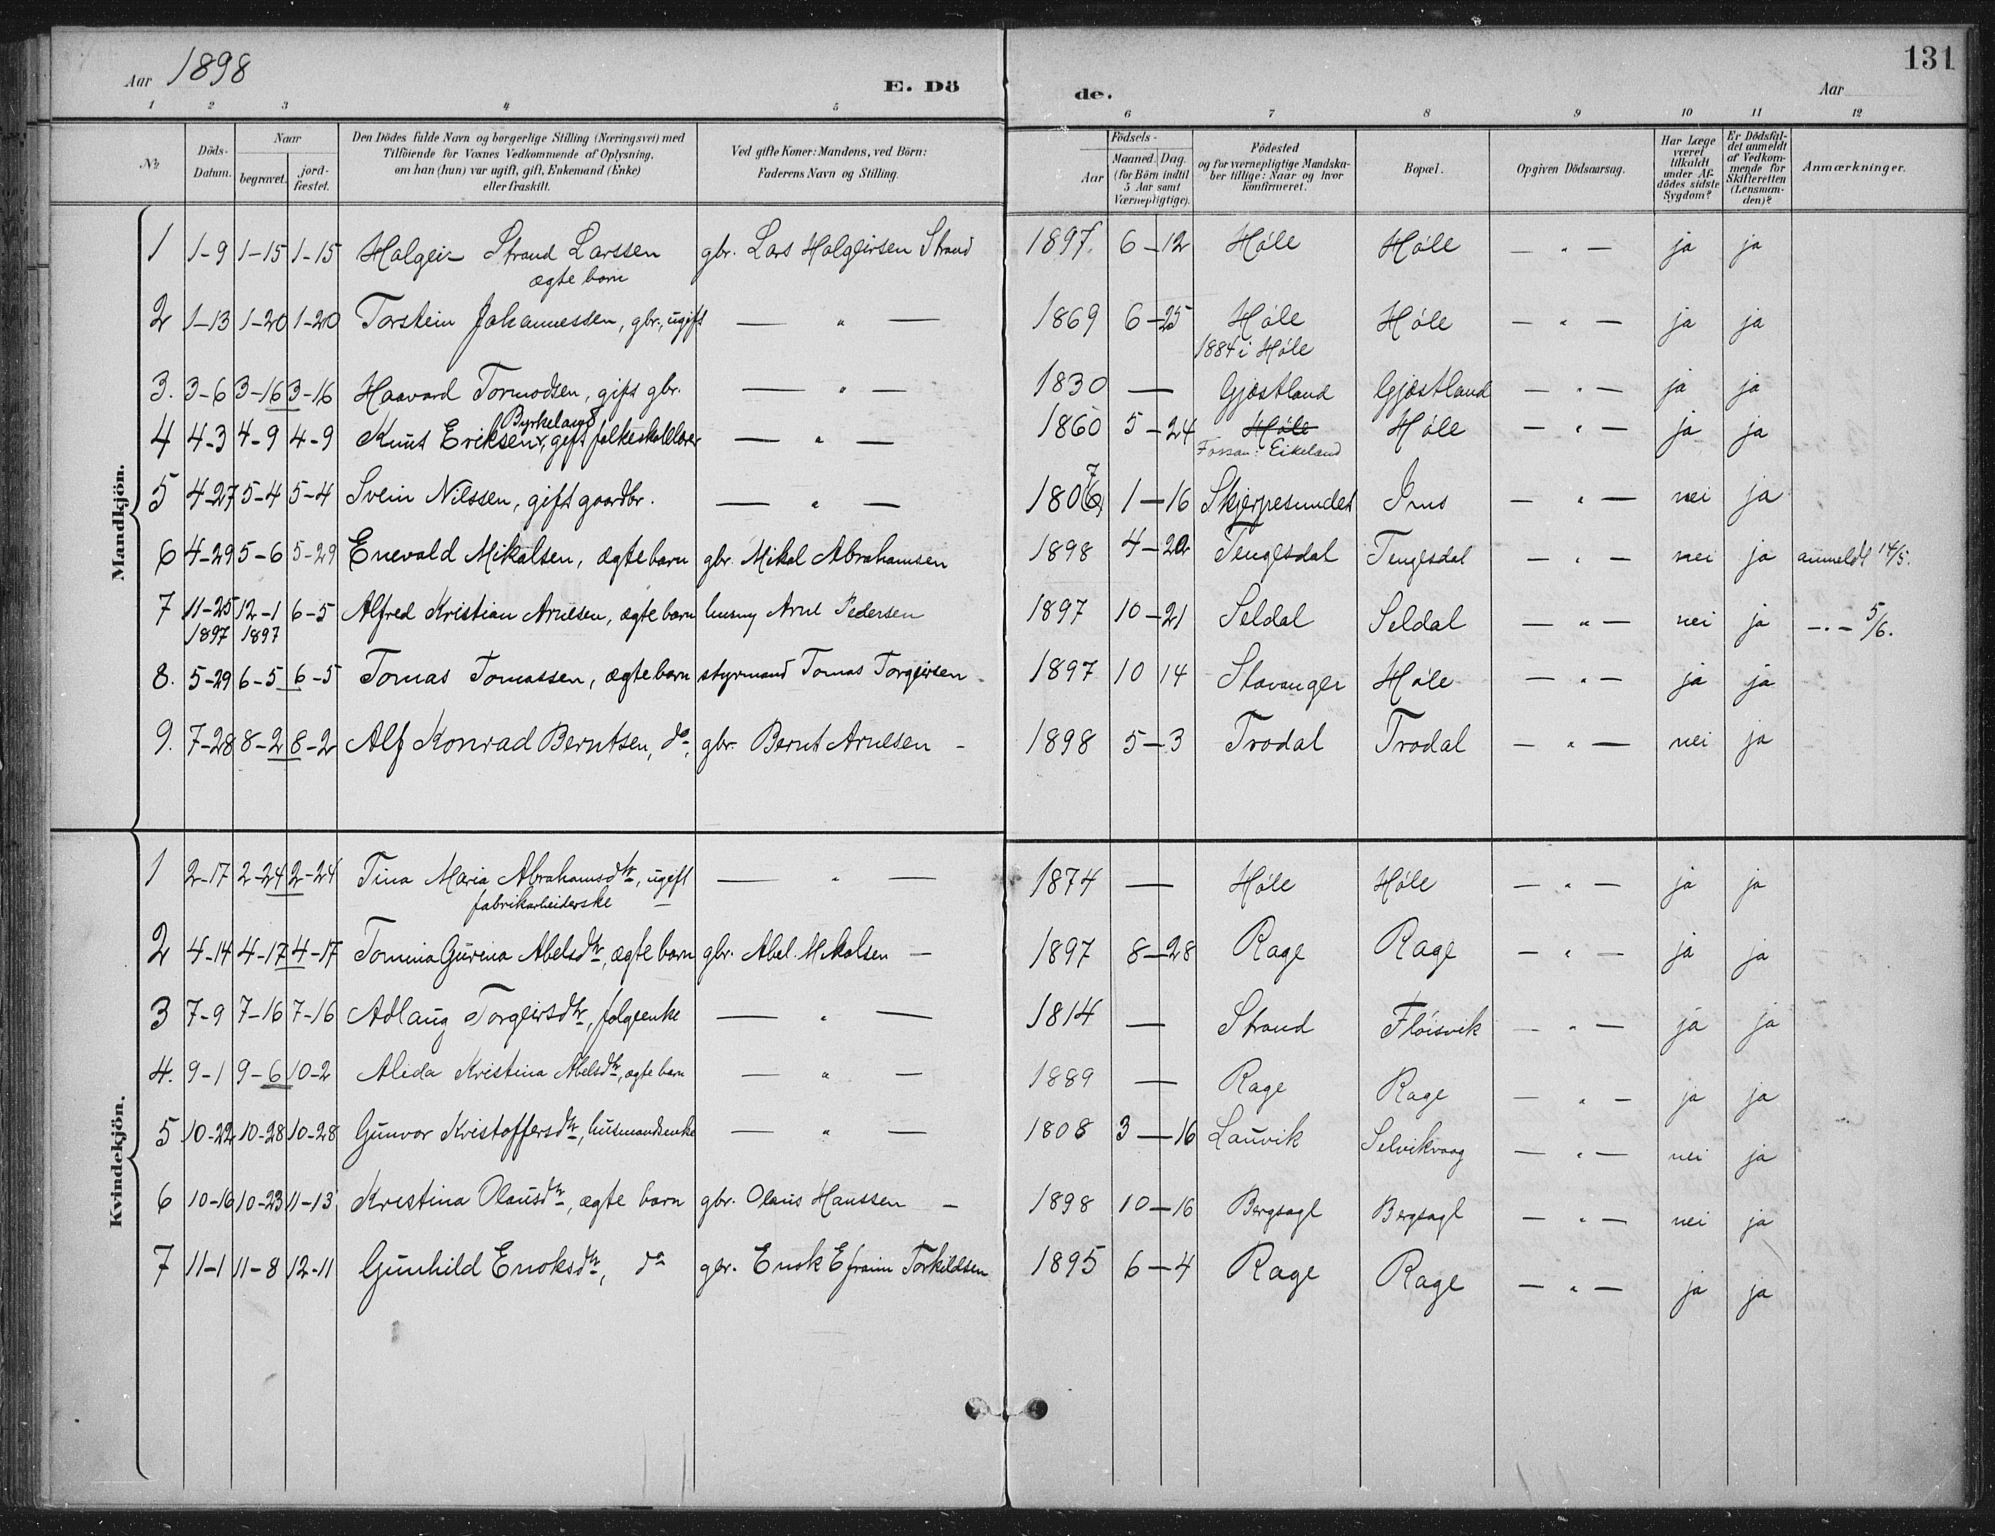 Aar 1898 E. Dö de. Aar 131
1 2 3 4 5 6 7 8 9 10 11 12
№ Döds-Datum. Naar begravet. jord-fæstet. Den Dödes fulde Navn og borgerlige Stilling (Næringsvei) med Tilföiende for Voxnes Vedkommende af Oplysning, om han (hun) var ugift, gift, Enkemand (Enke) eller fraskilt. Ved gifte Koner: Mandens, ved Börn: Faderens Navn og Stilling. Födsels- Aar Maaned. Dag. (for Börn indtil 5 Aar samt Værnepligtige). Födested og for værnepligtige Mandska-ber tillige: Naar og hvor konfirmeret. Bopæl. Opgiven Dödsaarsag. Har Læge været tilkaldt under Af-dödes sidste Sygdom? Er Dödsfal-det anmeldt af Vedkom-mende for Skifteretten (Lensman-den)? Anmærkninger.
Mandkjön.
1 1-9 1-15 1-15 Holgeir Strand Larssen gbr. Lars Holgeirsen Strand 1897. 6-12 Høle Høle — " — ja ja
ægte barn
2 1-13 1-20 1-20 Torstein Johannessen, gbr., ugift — " — 1869 6-25 Høle Høle — " — ja ja
1884 i Høle
3. 3-6 3-16 3-16 Haavard Tormodsen, gift gbr. — " — 1830 — Gjøstland Gjøstland — " — ja ja
Byrkeland
4 4-3 4-9 4-9 Knut Eriksen, gift folkeskolelærer — " — 1860 5-24 Høle Høle — " — ja ja
Forsan: Eikeland
7
5 4-27 5-4 5-4 Svein Nilssen, gift gaardbr. — " — 1806 1-16 Skjerpesundet Ims — " — nei ja
6 4-29 5-6 5-29 Enevald Mikalsen, ægte barn gbr. Mikal Abrahamsen 1898 4-20 Tengesdal Tengesdal — " — nei ja anmeldt 14/5.
7 11-25 12-1 6-5 Alfred Kristian Arnesen, ægte barn husmd Arne Pedersen 1897 10-21 Seldal Seldal — " — nei ja —"— 5/6.
1897 1897
8. 5-29 6-5 6-5 Tomas Tomassen, ægte barn styrmand Tomas Torgeirsen 1897 10 14 Stavanger Høle — " — ja ja
9. 7-28 8-2 8-2 Alf Konrad Berntsen, do, gbr. Bernt Arnesen - 1898 5-3 Trodal Trodal — " — nei ja
Kvindekjön.
1 2-17 2-24 2-24 Tina Maria Abrahamsdtr, ugift — " — 1874 — Høle Høle — " — ja ja
fabrikarbeiderske
2 4-14 4-17 4-17 Tomina Gurina Abelsdtr, ægte barn gbr. Abel Mikalsen — 1897 8-28 Rage Rage — " — ja ja
3 7-9 7-16 7-16 Adlaug Torgeirsdtr, folgeenke — " — 1814 — Strand Fløisvik — " — ja ja
4. 9-1 9-6 10-2 Alida Kristina Abelsdtr, ægte barn — " — 1889 — Rage Rage — " — ja ja
5 10-22 10-28 10-28 Gunvor Kristoffersdtr, husmandsenke — " — 1808 3-16 Lauvik Selvikvaag — " — nei ja
6 10-16 10-23 11-13 Kristina Olausdtr, ægte barn gbr. Olaus Hanssen — 1898 10-16 Bergsagl Bergsagl — " — nei ja
7 11-1 11-8 12-11 Gunhild Enoksdtr, do gbr. Enok Efraim Torkildsen 1895 6-4 Rage Rage — " — ja ja